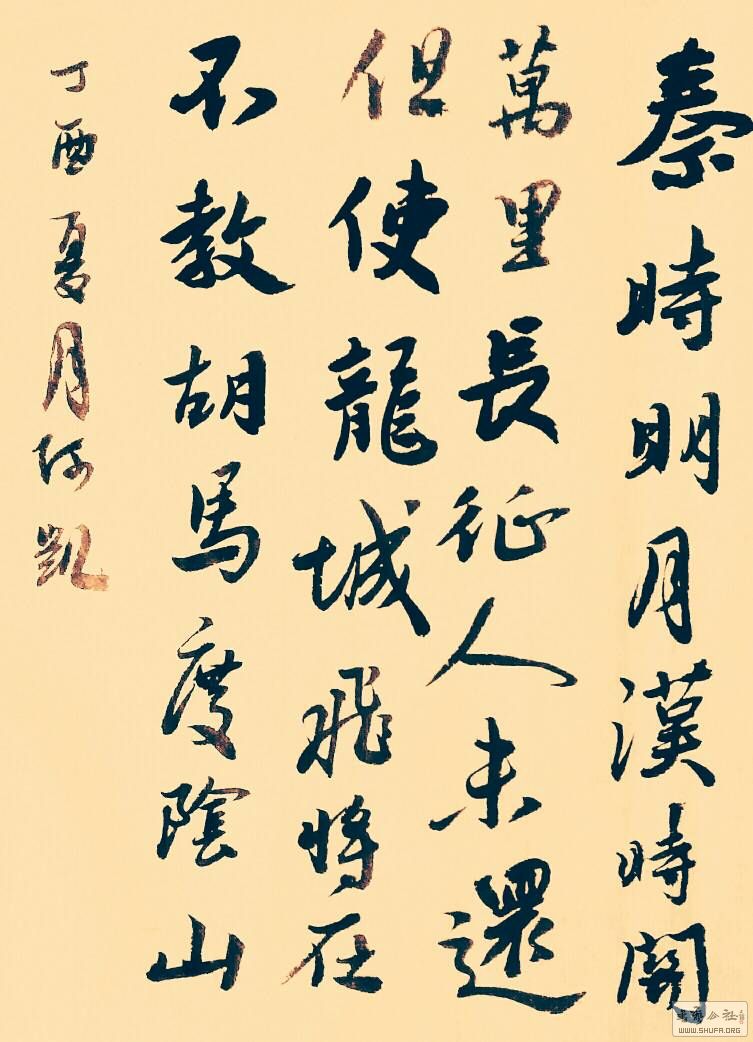 秦時明月漢時關
萬里長征人未還
但使龍城飛將在
不教胡馬度陰山
丁酉夏月阿凱
WWW.SHUFA.ORG